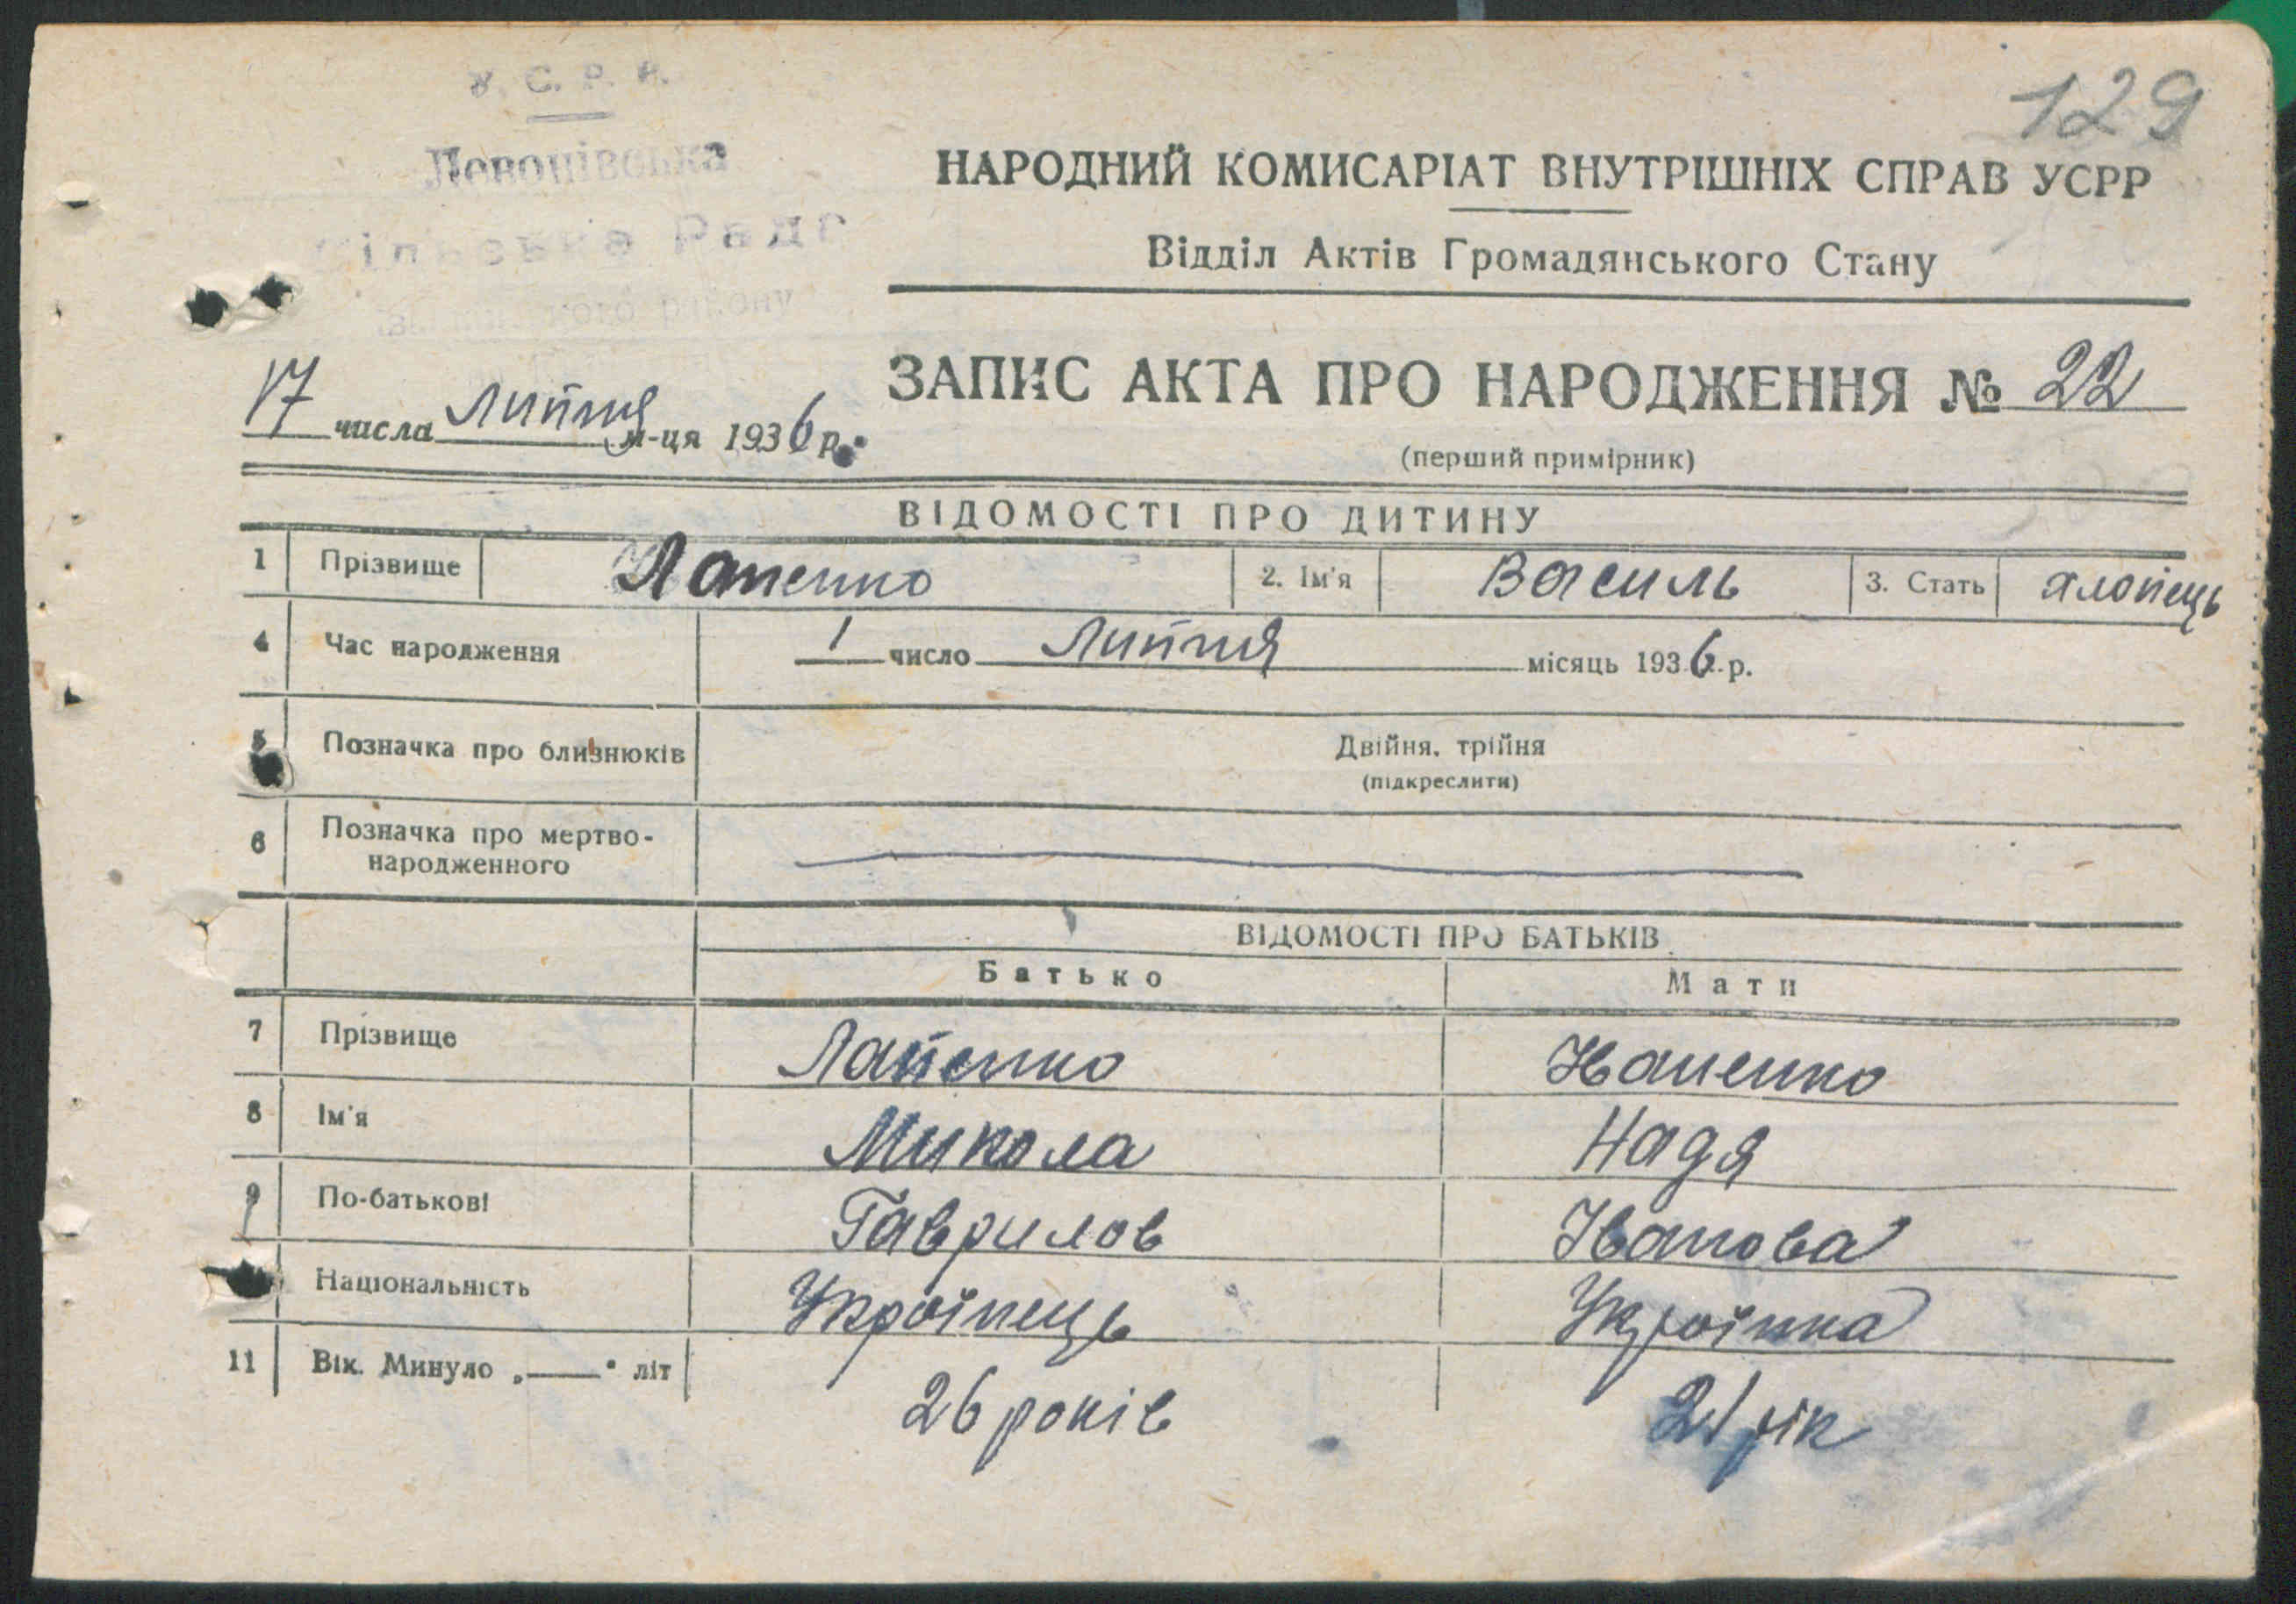 У. С. Р. Р.
129
НАРОДНИЙ КОМИСАРІАТ ВНУТРІШНІХ СПРАВ УСРР
Сільська Рада
Відділ Актів Громадянського Стану
району
17 числа Липня м-ця 1936 р.
ЗАПИС АКТА ПРО НАРОДЖЕННЯ № 22
(перший примірник)
ВІДОМОСТІ ПРО ДИТИНУ
1 Прізвище Лапенко 2. Ім'я Василь 3. Стать хлопець
4 Час народження 1 число Липня місяць 1936 р.
5 Позначка про близнюків Двійня, трійня
(підкреслити)
6 Позначка про мертво-
народженного
ВІДОМОСТІ ПРО БАТЬКІВ
Батько Мати
7 Прізвище Лапенко
8 Ім'я Микола Надя
9 По-батькові Гаврилов Іванова
Національність Українець Українка
11 Вік. Минуло „——" літ 26 років 21 рік